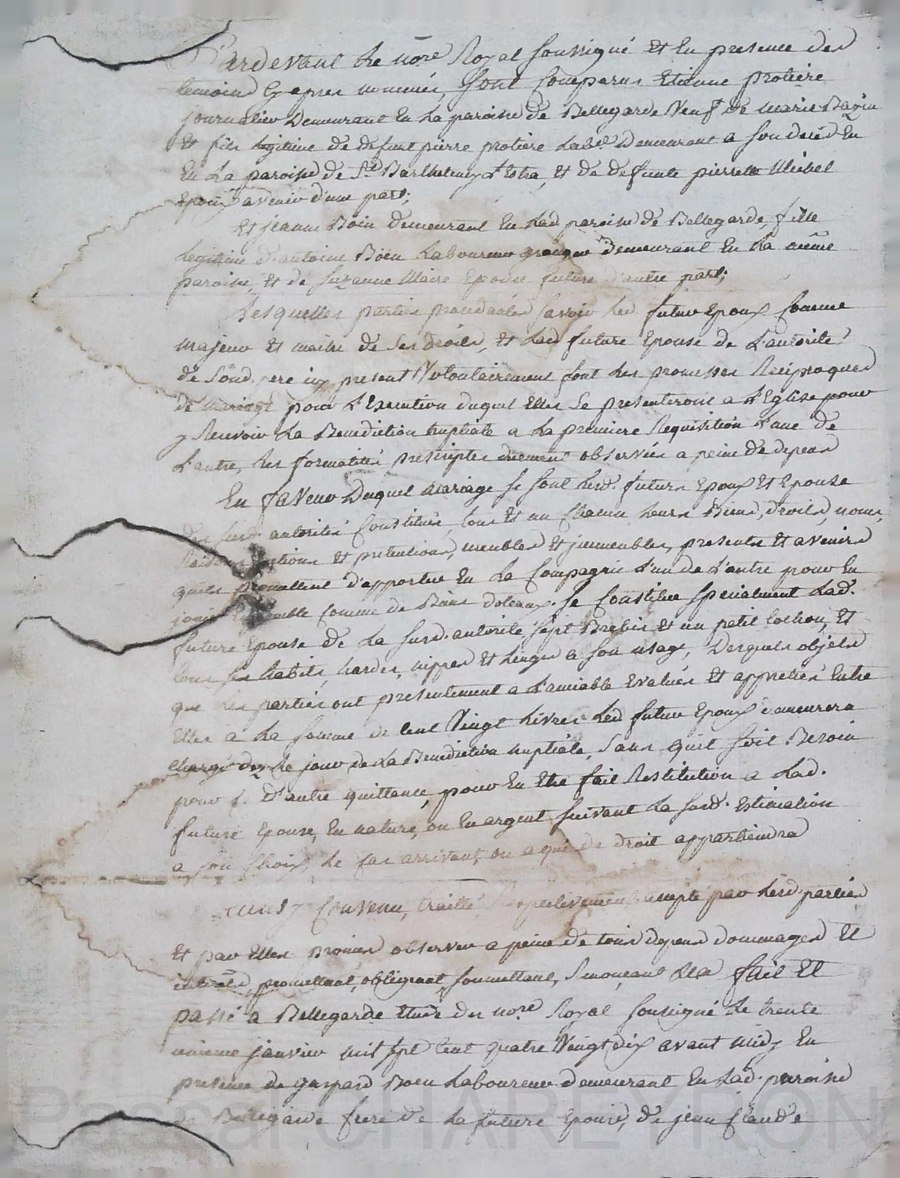 Pardevant Le no.re Royal soussigné Et En presence des
temoins Cy apres nommés, sont Comparus Etienne protiere
journalier Demeurant En La paroisse de Bellegarde Veuf de Marie
Et fils legitime de defunt pierre protiere Lab.r Demeurant a son décéd En
En La paroisse de St Barthelemy Lestra, Et de defunte pierrette
Epoux avenir d'une part;
Et jeanne Boën demeurant En Lad. paroisse de Bellegarde, fille
legitime d'antoine Boën Laboureur demeurant En La même
paroisse, Et de Suzanne Maire Epouse future d'autre part;
Lesquelles parties procedantes savoir Led. futur Epoux Comme
Majeur Et maitre de Ses droits, Et Lad. future Epouse de L'autorité
de Sond. pere icy present Volontairement font Les promesses Reciproques
de mariage pour L'Execution duquel Elles Se presenteront a L'Eglise pour
y Recevoir La Benediction nuptiale a La premiere Requisition L'une de
L'autre, Les formalités prescriptes observées a peine de depens
En faveur Duquel Mariage Se sont Lesd. futurs Epoux Et Epouse
autorités Constitués, tous Et un Chacun Leurs Biens, droits, noms,
Raisons actions Et pretentions, meubles Et jmmeubles, presents Et avenirs
quils promettent D'apporter En La Compagnie L'un de L'autre pour En
jouir Ensemble Comme de Biens dotaux. Se Constitue specialment Lad.
future Epouse de La susd. autorité, sept Brebis Et un petit Cochon, Et
tous ses habits, hardes, nippes Et Linges a son usage, Desquels objets
que Les parties ont presentement a L'amiable Evalués Et appretiés Entre
Elles a La somme de Cent Vingt Livres Led. futur Epoux demeurera
Chargé dez Le jour de La Benediction nuptiale, Sans quil soit Besoin
pour d'autre quittance, pour En Etre fait Restitution a Lad.
future Epouse, En nature, ou En argent suivant La susd. Estimation
a son Choix, Le Cas arrivant, ou a qui de droit appartiendra
Ainsy Convenu, traitté, Respectivement accepté par Lesd. parties
Et par Elles promis observer a peine de tous depens dommages Et
interets, promettant, obligeant, soumettant, Renonçant &a fait Et
passé a Bellegarde Etude du no.re Royal soussigné Le trente
unieme janvier mil sept Cent quatre Vingt dix avant midy En
presence de gaspard Boën Laboureur demeurant En Lad. paroisse
de Bellegarde frere de La future Epouse, de jean Claude
Pascal CHAREYRON